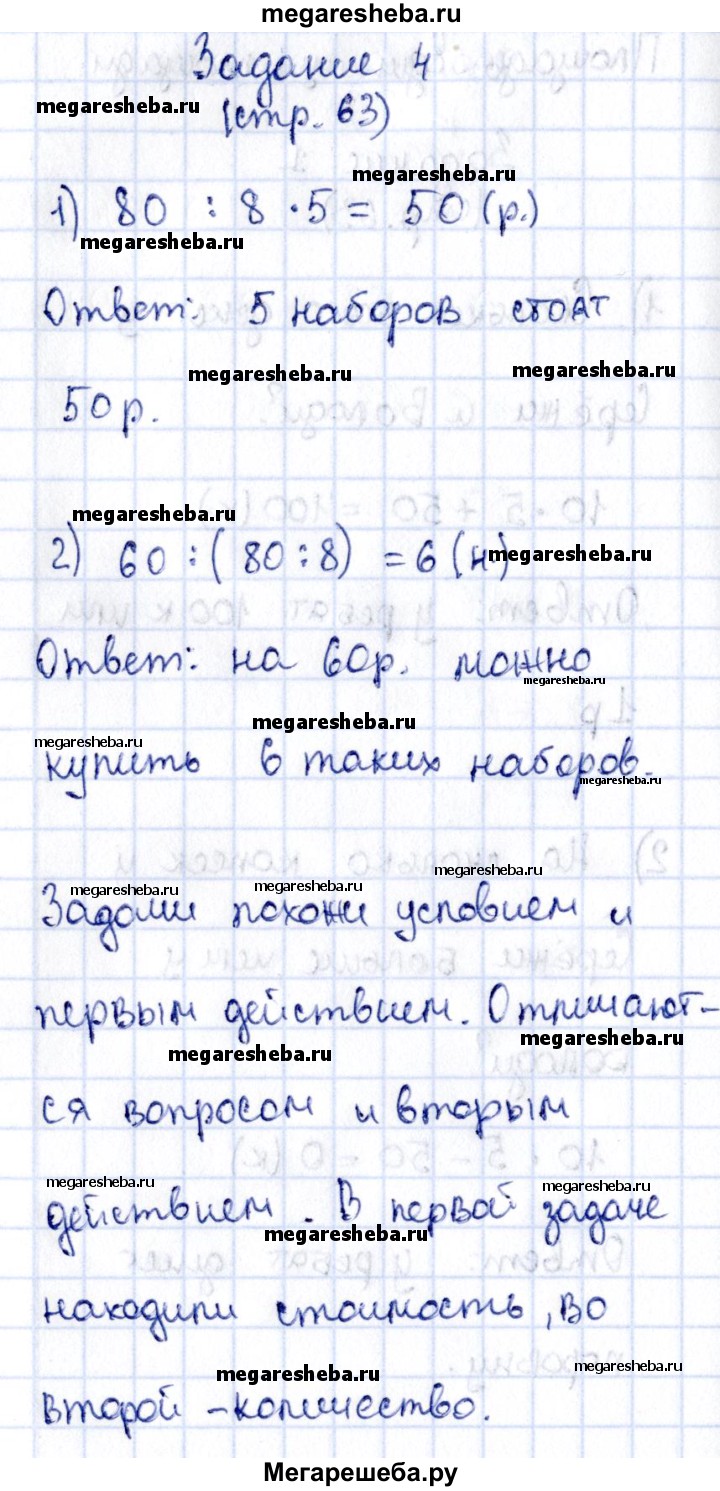 megaresheba.ru
Задание 4
megaresheba.ru
(стр. 63)
megaresheba.ru
1) 80 : 8 · 5 = 50 (р.)
megaresheba.ru
Ответ: 5 наборов стоят
megaresheba.ru megaresheba.ru
50р.
megaresheba.ru
2) 60 : (80 : 8) = 6 (н)
megaresheba.ru
Ответ: на 60р. можно
megaresheba.ru
megaresheba.ru
megaresheba.ru
купить 6 таких наборов.
megaresheba.ru
megaresheba.ru megaresheba.ru megaresheba.ru
Задачи похожи условием и
первым действием. Отличают-
megaresheba.ru megaresheba.ru
ся вопросом и вторым
megaresheba.ru megaresheba.ru
действием. В первой задаче
megaresheba.ru
находили стоимость, во
megaresheba.ru megaresheba.ru
второй - количество.
Мегарешеба.ру